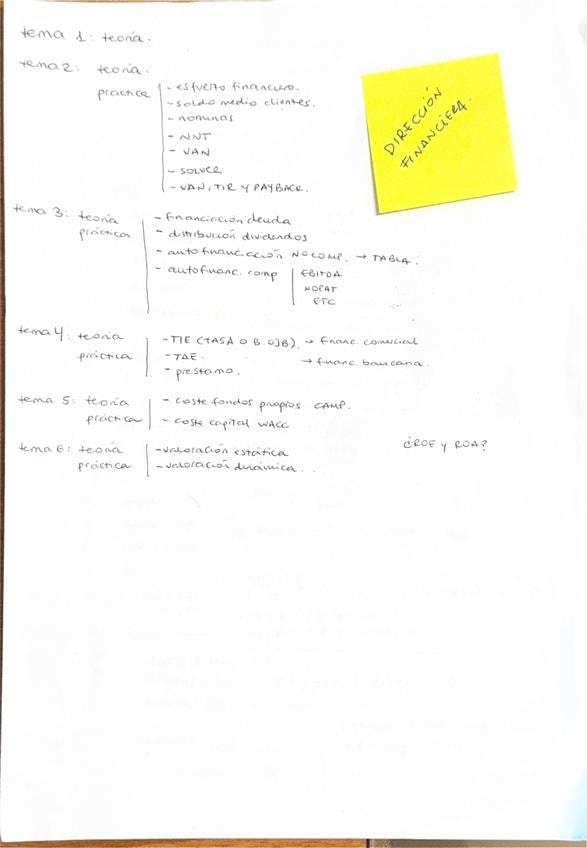 tema 1: teoría.
tema 2: teoría.
práctica
- esfuerzo financiero.
- saldo medio clientes.
- nominas
- NNT
- VAN
- SOLVER
- VAN, TIR Y PAYBACK.
DIRECCIÓN
FINANCIERA.
tema 3: teoría
práctica
- financiación deuda
- distribución dividendos
- autofinanciación NO COMP. → TABLA.
- autofinanc. comp
EBITDA
NOPAT
ETC
tema 4. teoría
práctica
- TIE (TASA O B.OJB). → financ. comercial
- TAE. → financ. bancaria.
- préstamo.
tema 5: teoría
práctica
- coste fondos propios CAMP.
- coste capital WACC
tema 6: teoría
práctica
- valoración estática
- valoración dinámica...
¿ROE y ROA?